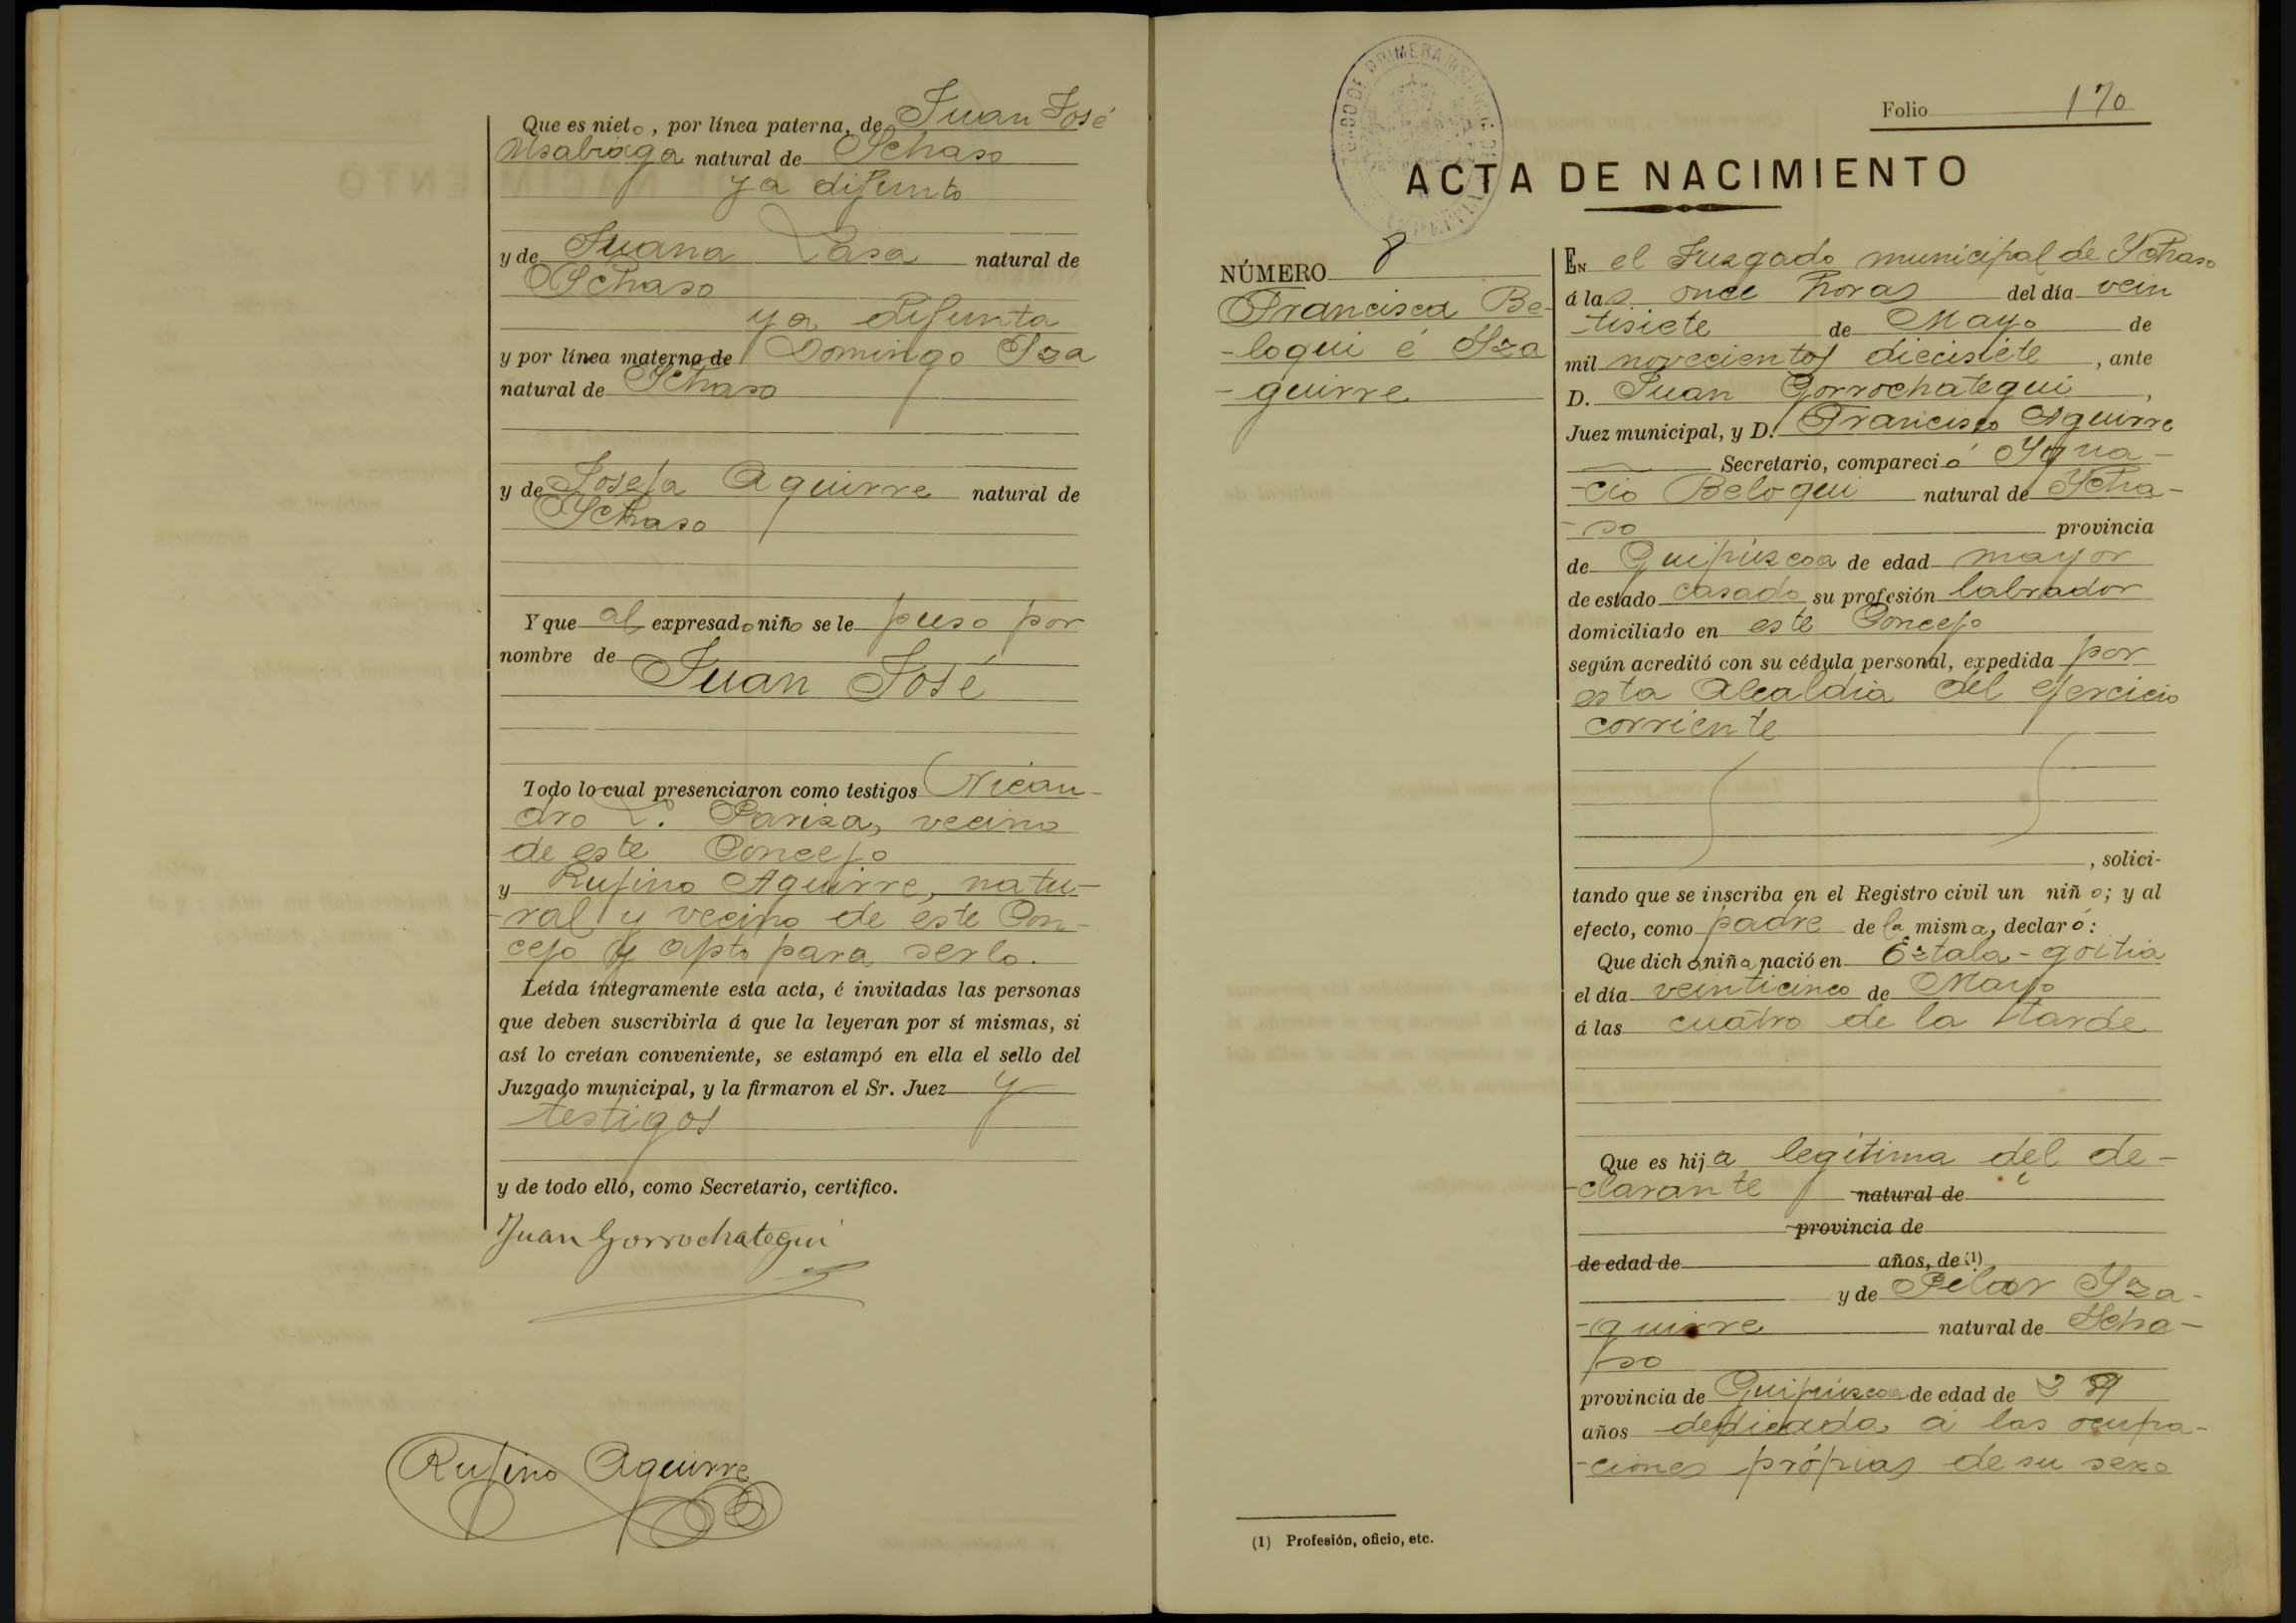 Que es nieto, por línea paterna, de Juan José
Usabiaga natural de Ichaso
ya difunto
y de Juana Lasa natural de
Ichaso
ya difunta
y por línea materna de Domingo Iza
natural de Ichaso
y de Josefa Aguirre natural de
Ichaso
Y que al expresado niño se le puso por
nombre de
Juan José
Todo lo cual presenciaron como testigos Nican-
dro L. Pariza, vecino
de este Concejo
y Rufino Aguirre, natu-
-ral y vecino de este Con-
cejo y apto para serlo.
Leída íntegramente esta acta, é invitadas las personas
que deben suscribirla á que la leyeran por sí mismas, si
así lo creían conveniente, se estampó en ella el sello del
Juzgado municipal, y la firmaron el Sr. Juez y
testigos
y de todo ello, como Secretario, certifico.
Juan Gorrochategui
Rufino Aguirre
Folio 170
ACTA DE NACIMIENTO
NÚMERO 8
Francisca Be-
-loqui é Iza
-guirre
EN el Juzgado municipal de Ichaso
á las once horas del día vein
-tisiete de Mayo de
mil novecientos diecisiete, ante
D. Juan Gorrochategui,
Juez municipal, y D. Francisco Aguirre
Secretario, compareció Igna-
-cio Beloqui natural de Icha-
-so provincia
de Guipúzcoa de edad mayor
de estado casado su profesión labrador
domiciliado en este Concejo
según acreditó con su cédula personal, expedida por
esta Alcaldia del ejercicio
corriente
, solici-
tando que se inscriba en el Registro civil un niño; y al
efecto, como padre de la misma, declaró:
Que dicha niña nació en Eztala-goitia
el día veinticinco de Mayo
á las cuatro de la tarde
Que es hija legítima del de-
-clarante natural de
provincia de
de edad de años, de (1)
y de Pilar Iza-
-guirre natural de Icha-
so
provincia de Guipúzcoa de edad de
años dedicada á las ocupa-
-ciones própias de su sexo
(1) Profesión, oficio, etc.